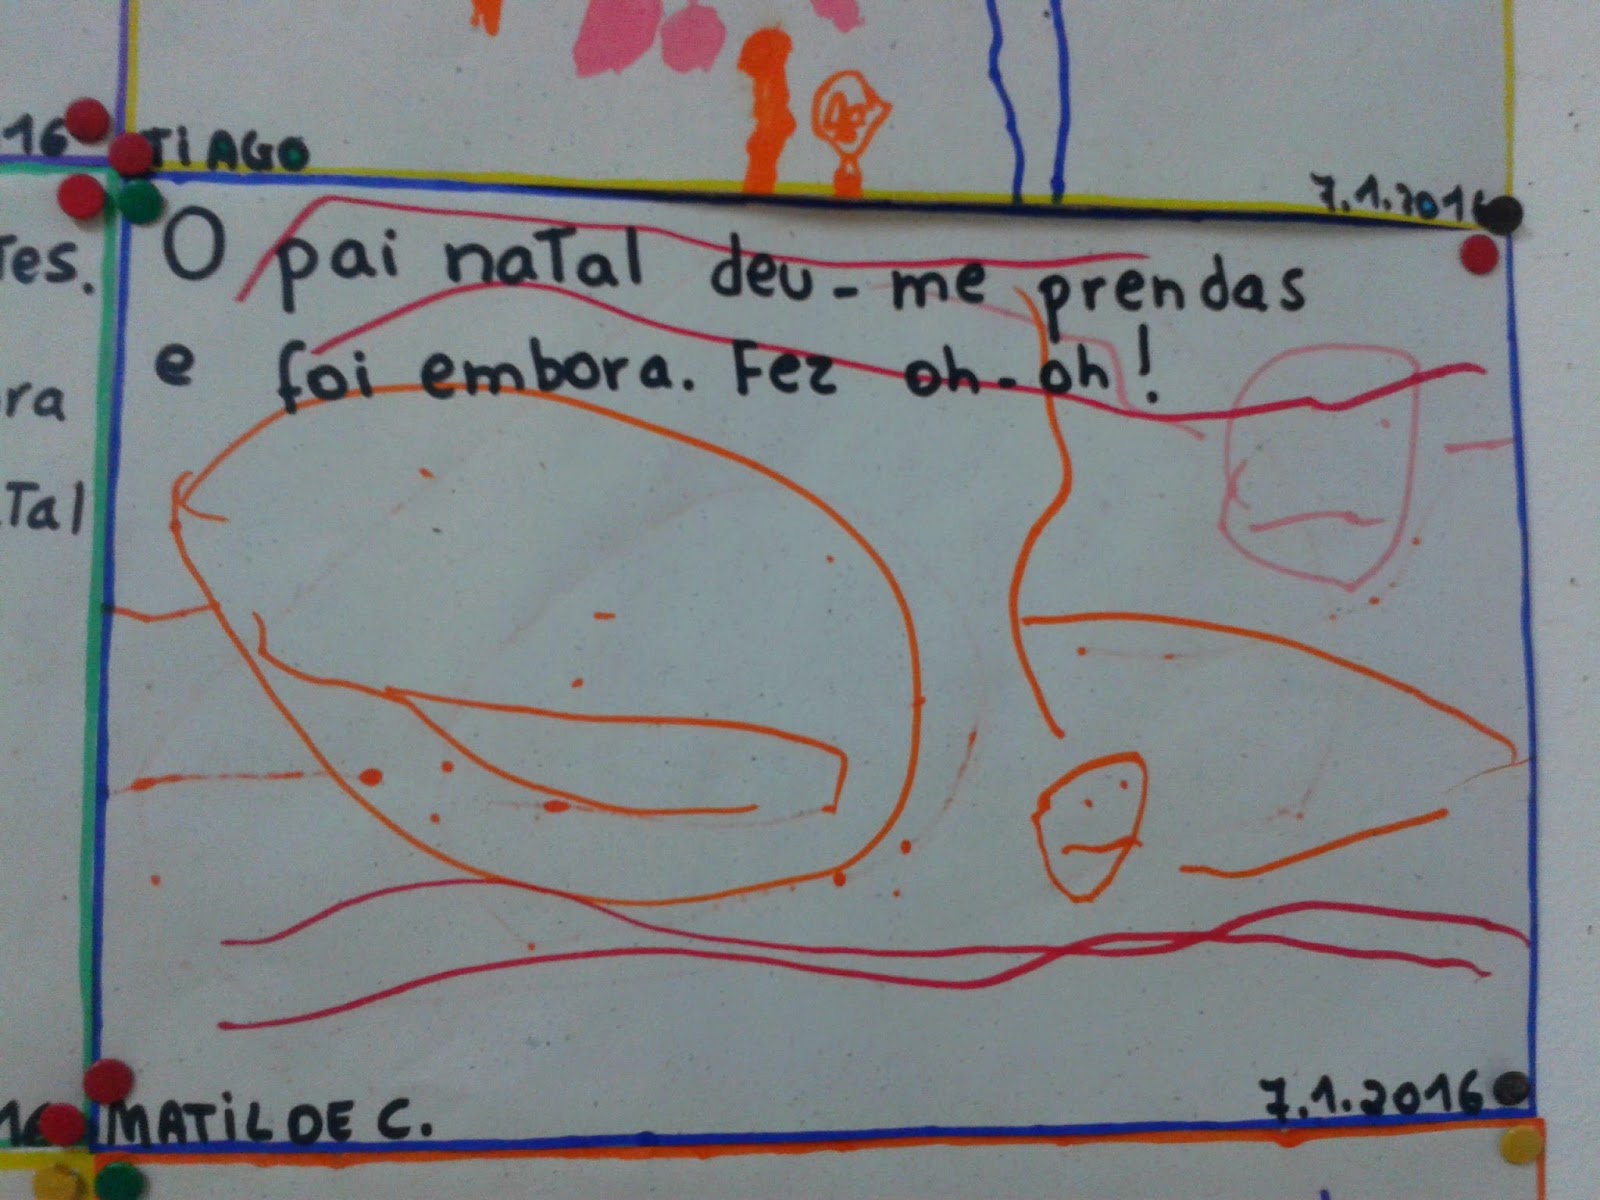 16
TIAGO
7.1.2016
Tes.
O pai natal deu-me prendas
e foi embora. Fez oh-oh!
ra
Tal
16
MATILDE C.
7.1.2016